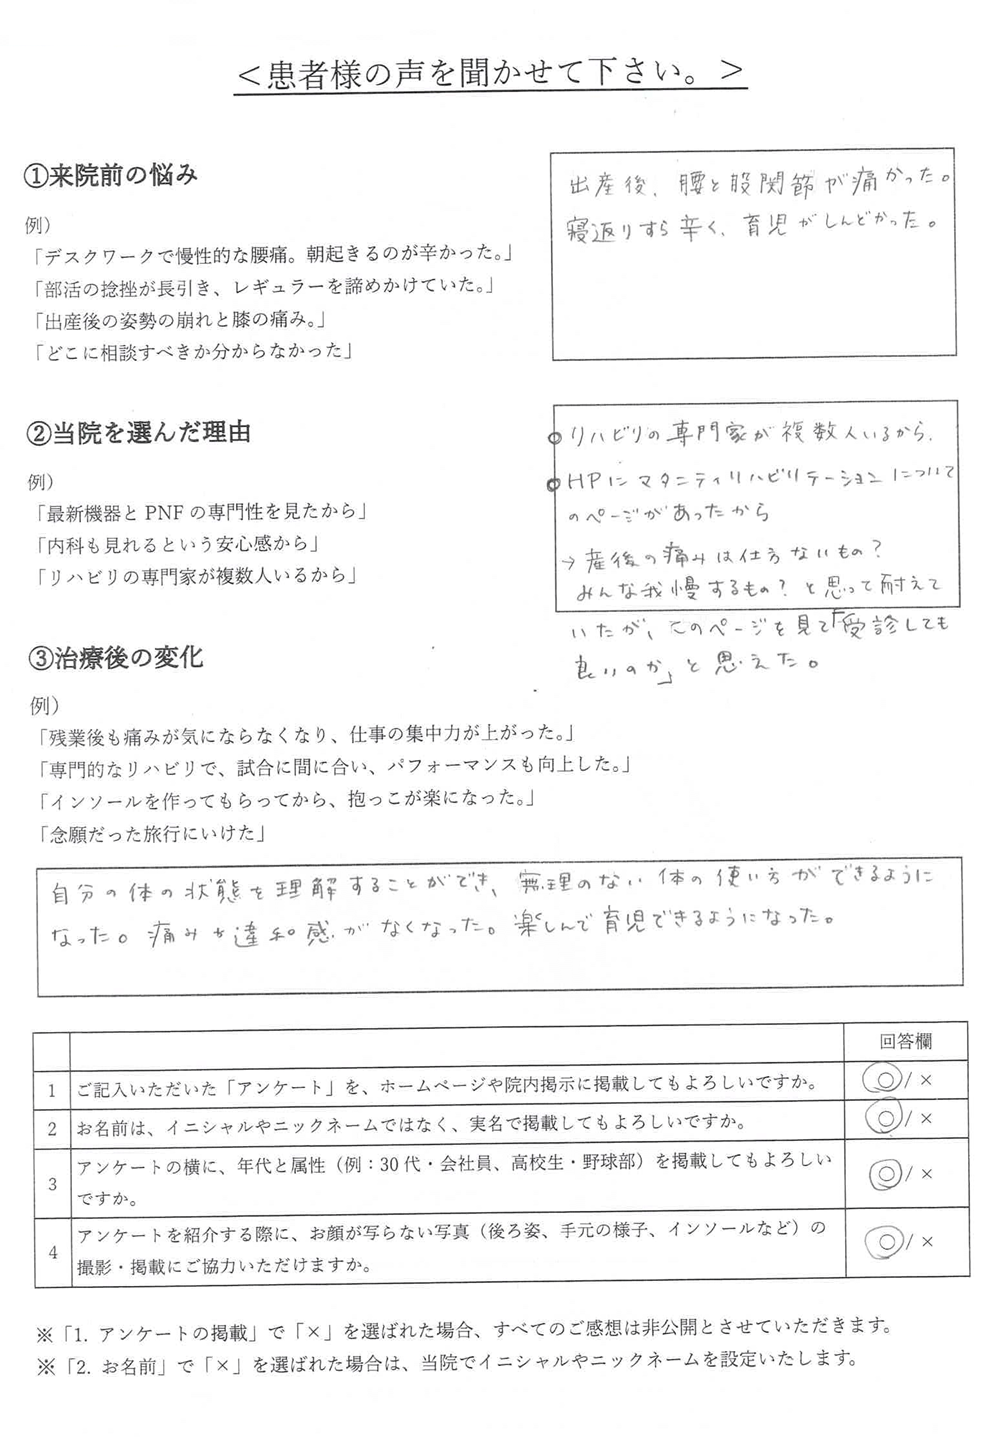 ＜患者様の声を聞かせて下さい。＞
①来院前の悩み
例）
「デスクワークで慢性的な腰痛。朝起きるのが辛かった。」
「部活の捻挫が長引き、レギュラーを諦めかけていた。」
「出産後の姿勢の崩れと膝の痛み。」
「どこに相談すべきか分からなかった」
出産後、腰と股関節が痛かった。
寝返りすら辛く、育児がしんどかった。
②当院を選んだ理由
例）
「最新機器と PNF の専門性を見たから」
「内科も見れるという安心感から」
「リハビリの専門家が複数人いるから」
○リハビリの専門家が複数人いるから.
○HPにマタニティリハビリテーションについて
のページがあったから
→産後の痛みは仕方ないもの？
みんな我慢するもの？と思って耐えて
いたが、このページを見て「受診しても
良いのか」と思えた。
③治療後の変化
例）
「残業後も痛みが気にならなくなり、仕事の集中力が上がった。」
「専門的なリハビリで、試合に間に合い、パフォーマンスも向上した。」
「インソールを作ってもらってから、抱っこが楽になった。」
「念願だった旅行にいけた」
自分の体の状態を理解することができ、無理のない体の使い方ができるように
なった。痛みも違和感がなくなった。楽しんで育児できるようになった。
回答欄
1 ご記入いただいた「アンケート」を、ホームページや院内掲示に掲載してもよろしいですか。 ○/×
2 お名前は、イニシャルやニックネームではなく、実名で掲載してもよろしいですか。 ○/×
3 アンケートの横に、年代と属性（例：30 代・会社員、高校生・野球部）を掲載してもよろしい
ですか。 ○/×
4 アンケートを紹介する際に、お顔が写らない写真（後ろ姿、手元の様子、インソールなど）の
撮影・掲載にご協力いただけますか。 ○/×
※「1. アンケートの掲載」で「×」を選ばれた場合、すべてのご感想は非公開とさせていただきます。
※「2. お名前」で「×」を選ばれた場合は、当院でイニシャルやニックネームを設定いたします。